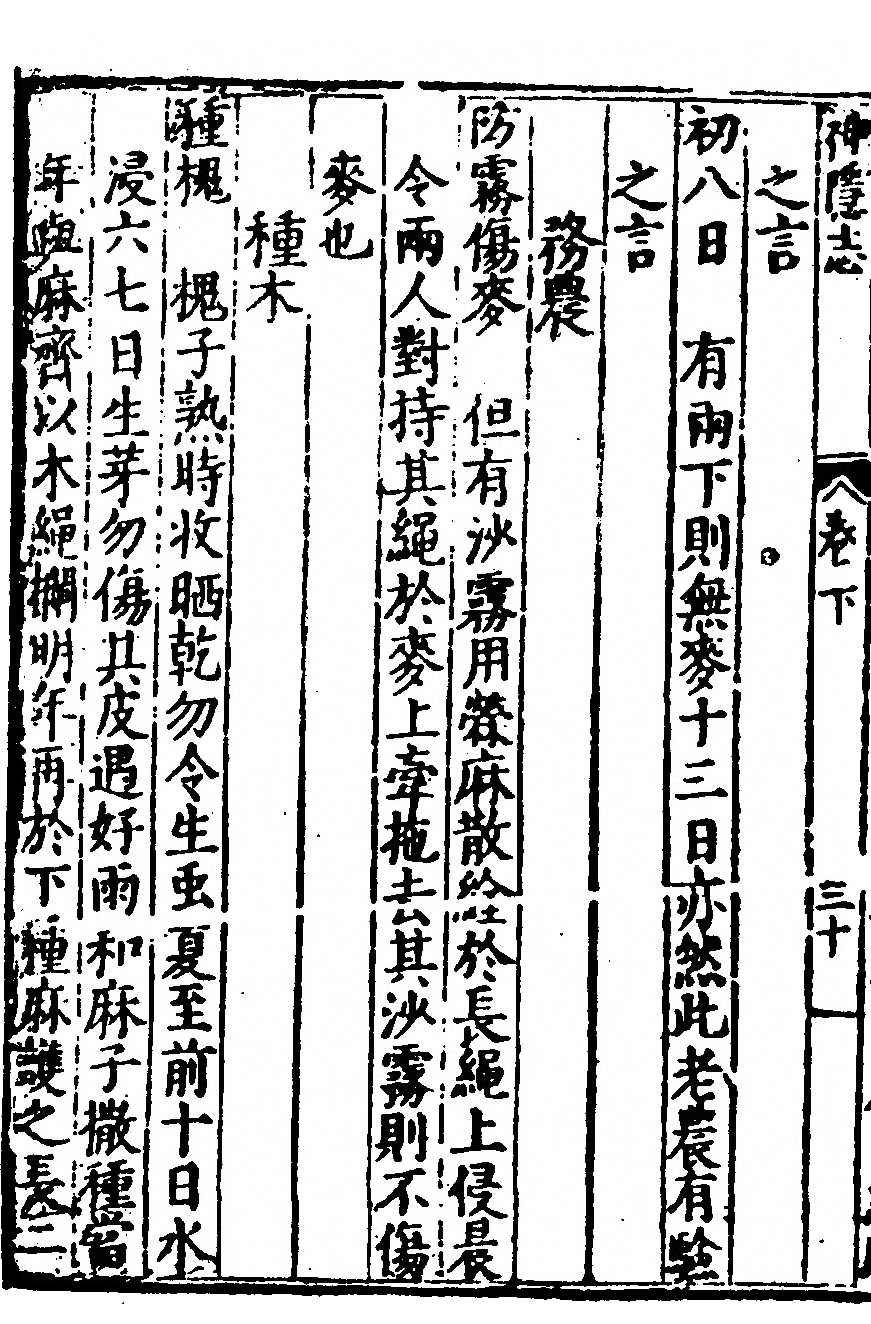 神隱志 卷下 三十
之言
初八日 有雨下則無麥十三日亦然此老農有驗
之言
務農
防霧傷麥 但有沙霧用檾麻散絟於長繩上侵晨
令兩人對持其繩於麥上牽拖去其沙霧則不傷
麥也
種木
種槐 槐子熟時收晒乾勿令生虫夏至前十日水
浸六七日生芽勿傷其皮遇好雨和麻子撒種當
年與麻齊以木繩攔明年再於下種麻護之長二